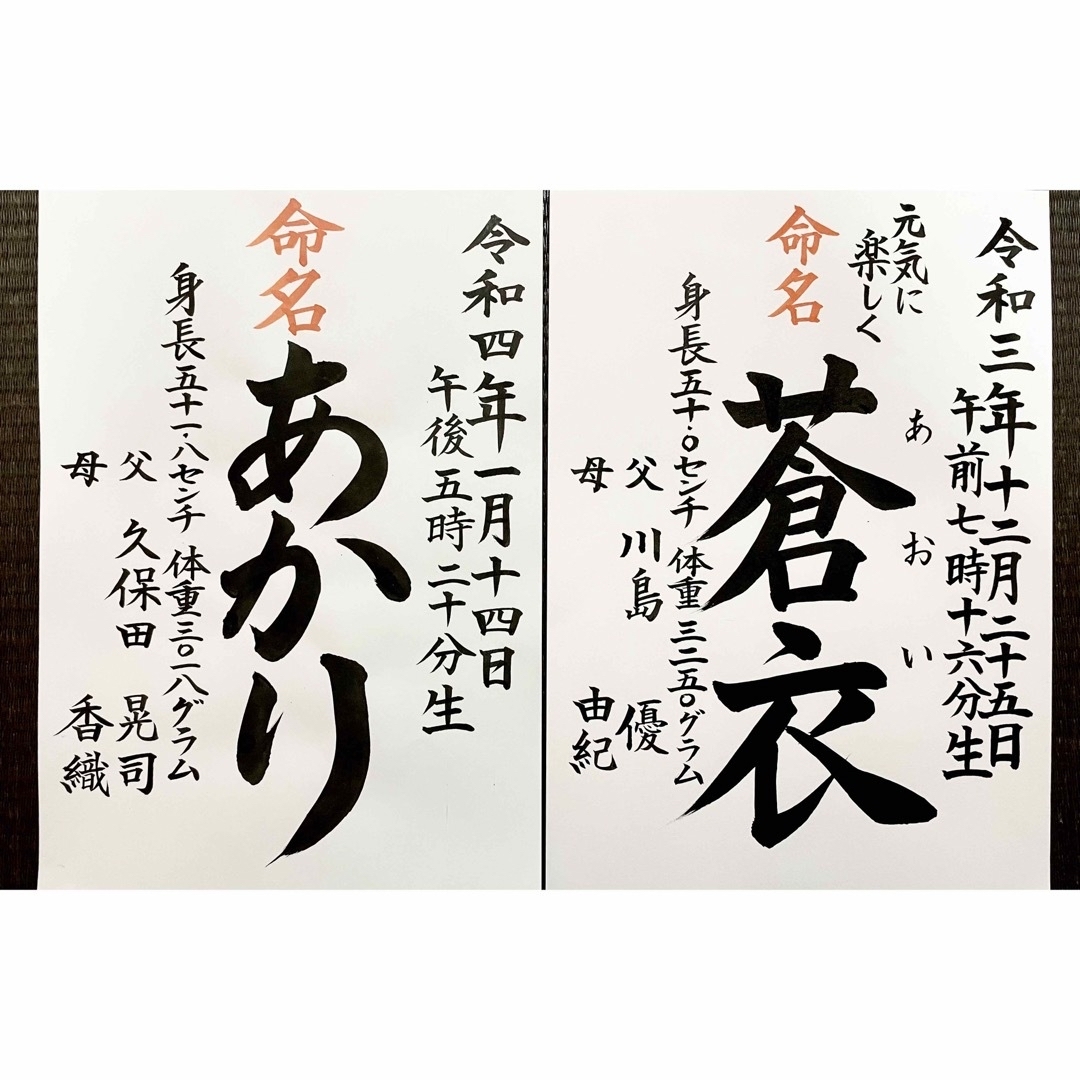 令和三年十二月二十五日
午前七時十六分生
元気に
楽しく
命名
蒼衣
あおい
身長五十・〇センチ 体重三二五〇グラム
父 川島 優
母 由紀
令和四年一月十四日
午後五時二十分生
命名
あかり
身長五十一・八センチ 体重三〇一八グラム
父 久保田 晃司
母 香織